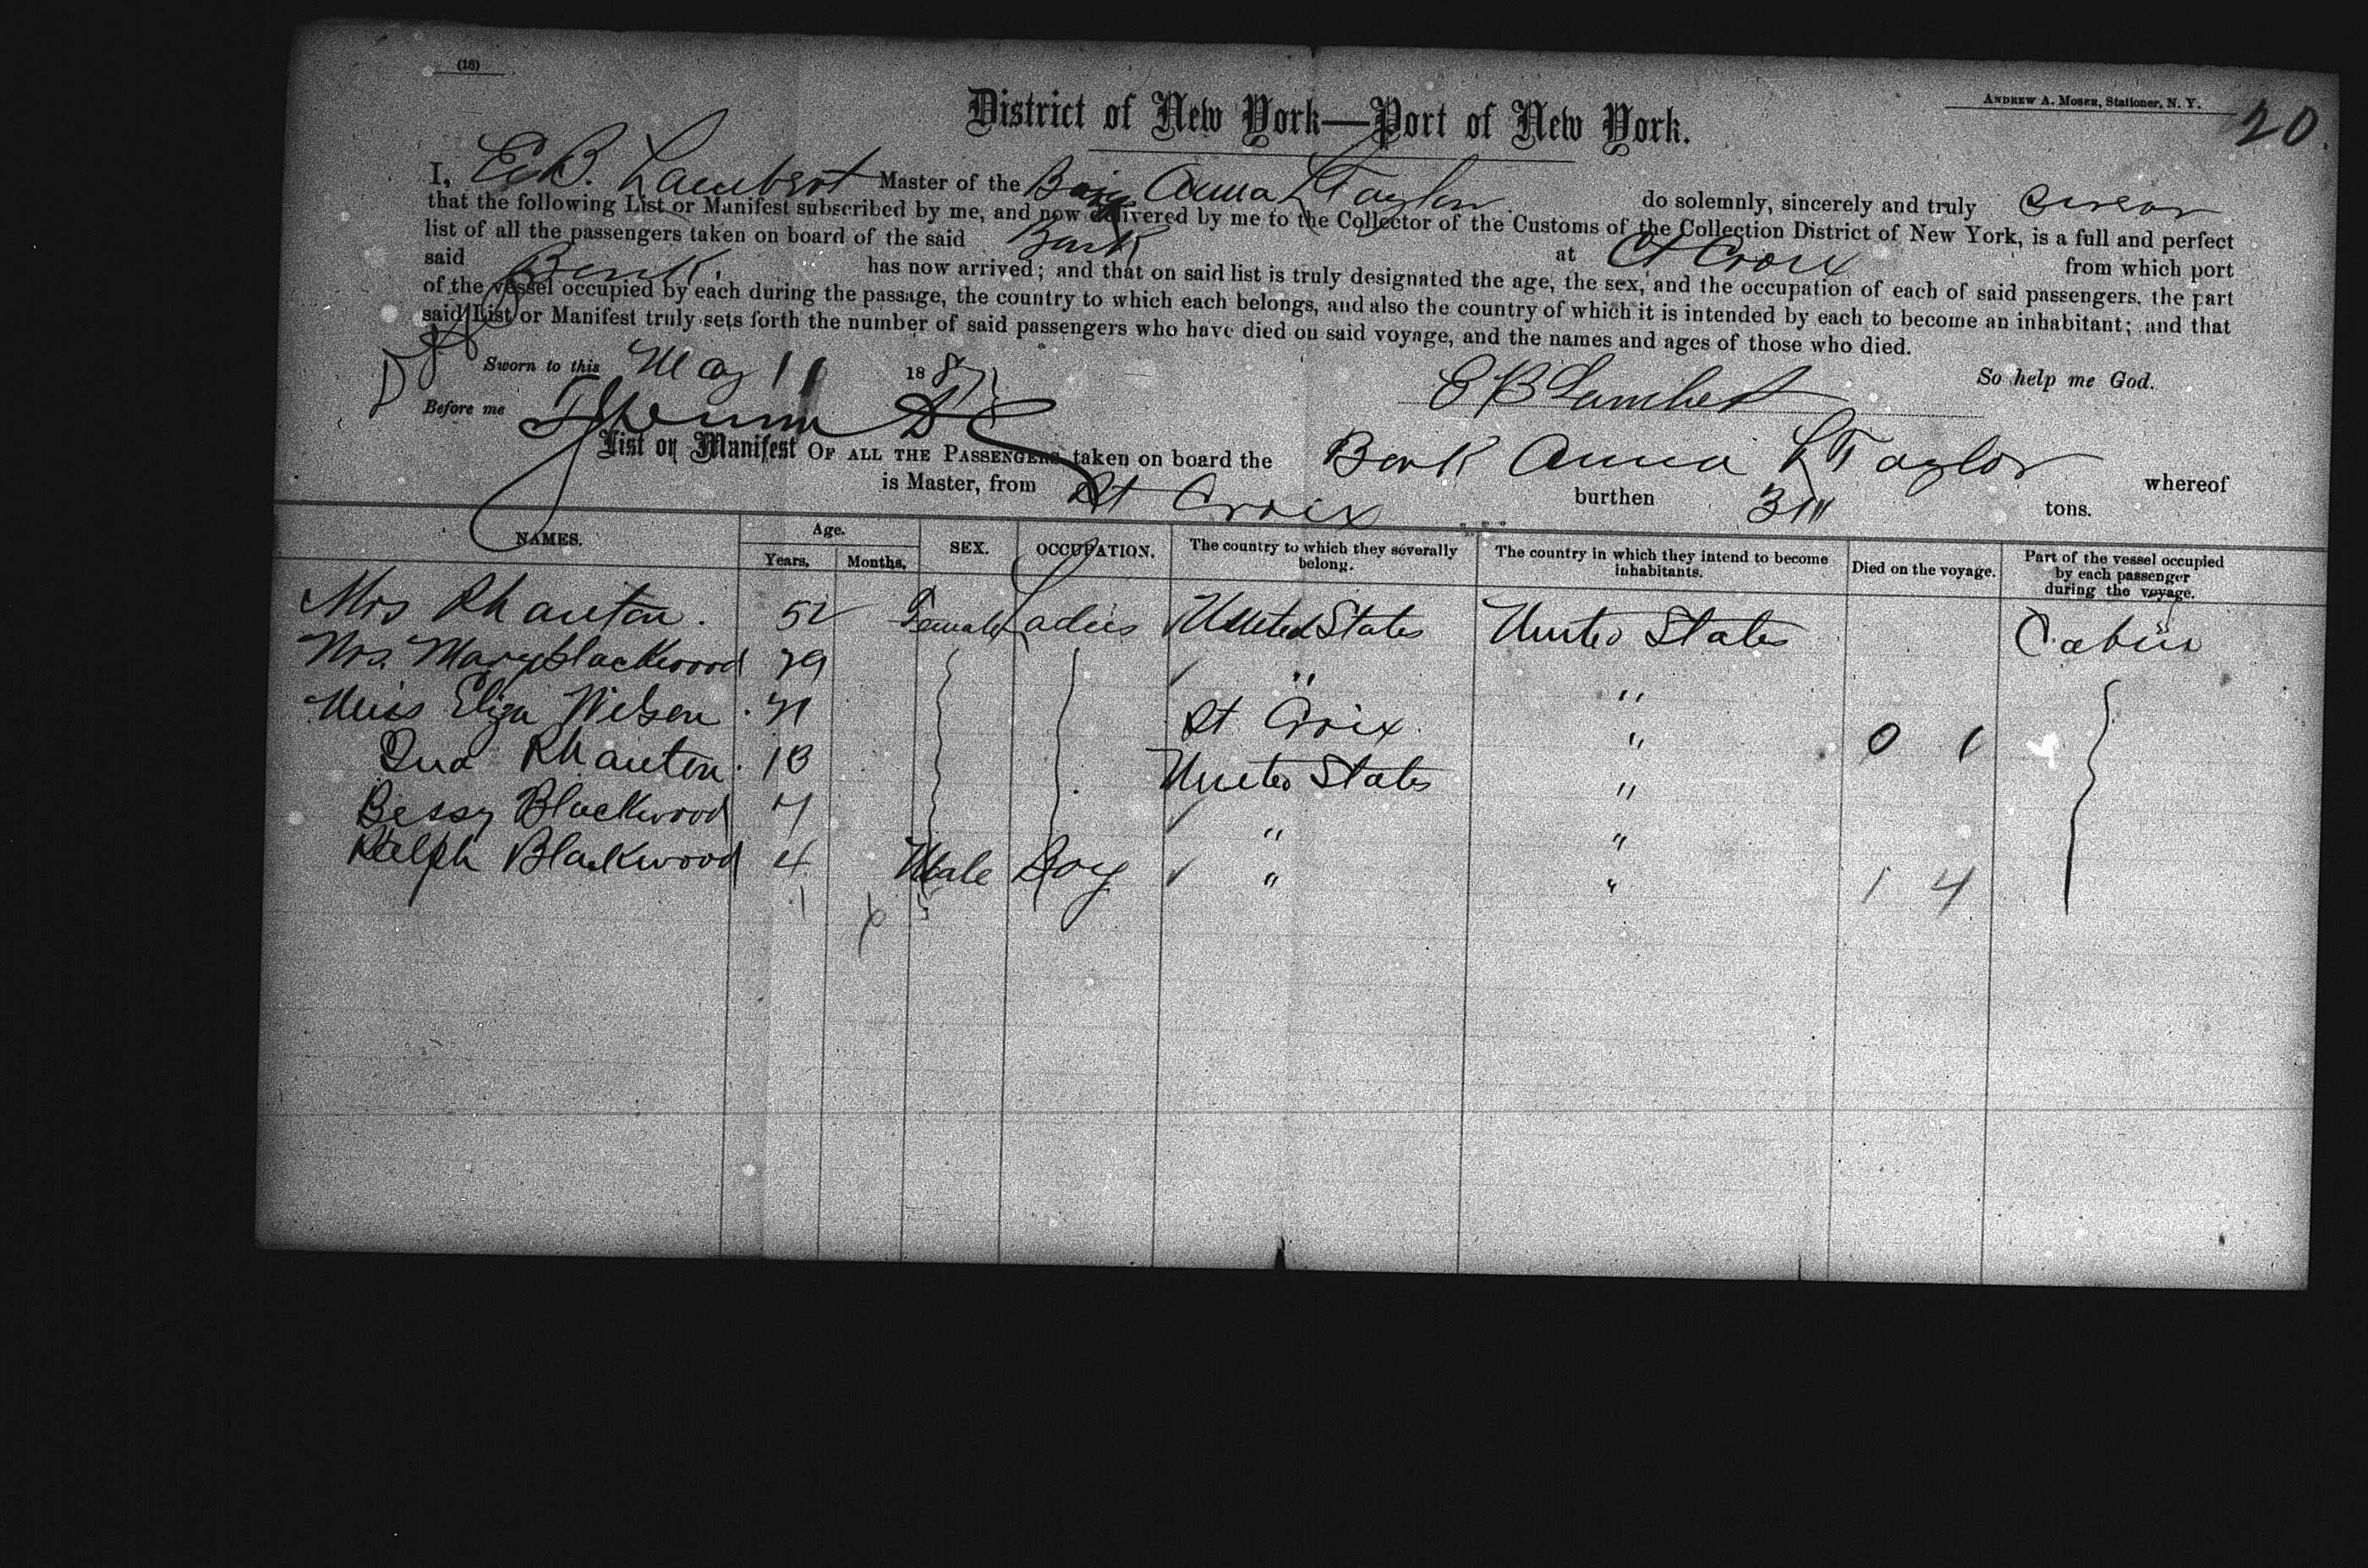 (18)
ANDREW A. MOSER, Stationer, N. Y.
20
District of New York—Port of New York.
I, E. B. Lambert Master of the Anna L Taylor do solemnly, sincerely and truly swear
that the following List or Manifest subscribed by me, and now delivered by me to the Collector of the Customs of the Collection District of New York, is a full and perfect
list of all the passengers taken on board of the said Bark at St Croix from which port
said Bark. has now arrived; and that on said list is truly designated the age, the sex, and the occupation of each of said passengers, the part
of the vessel occupied by each during the passage, the country to which each belongs, and also the country of which it is intended by each to become an inhabitant; and that
said List or Manifest truly sets forth the number of said passengers who have died on said voyage, and the names and ages of those who died.
So help me God.
Sworn to this May 11 18
E B Lambert
Before me
List or Manifest OF ALL THE PASSENGERS taken on board the Bark Anna L Taylor whereof
is Master, from St Croix burthen tons.
NAMES. Age. Years. Months. SEX. OCCUPATION. The country to which they severally belong. The country in which they intend to become inhabitants. Died on the voyage. Part of the vessel occupied by each passenger during the voyage.
Mrs Rhanton. 52 Female Ladies United States United States Cabin
Mrs. Mary Blackwood 29 " "
Miss Eliza Wilson St Croix. " 0 1
Ina Rhanton. 18 United States "
Bessy Blackwood 7 " "
Ralph Blackwood 4 Male Boy " " 1 4